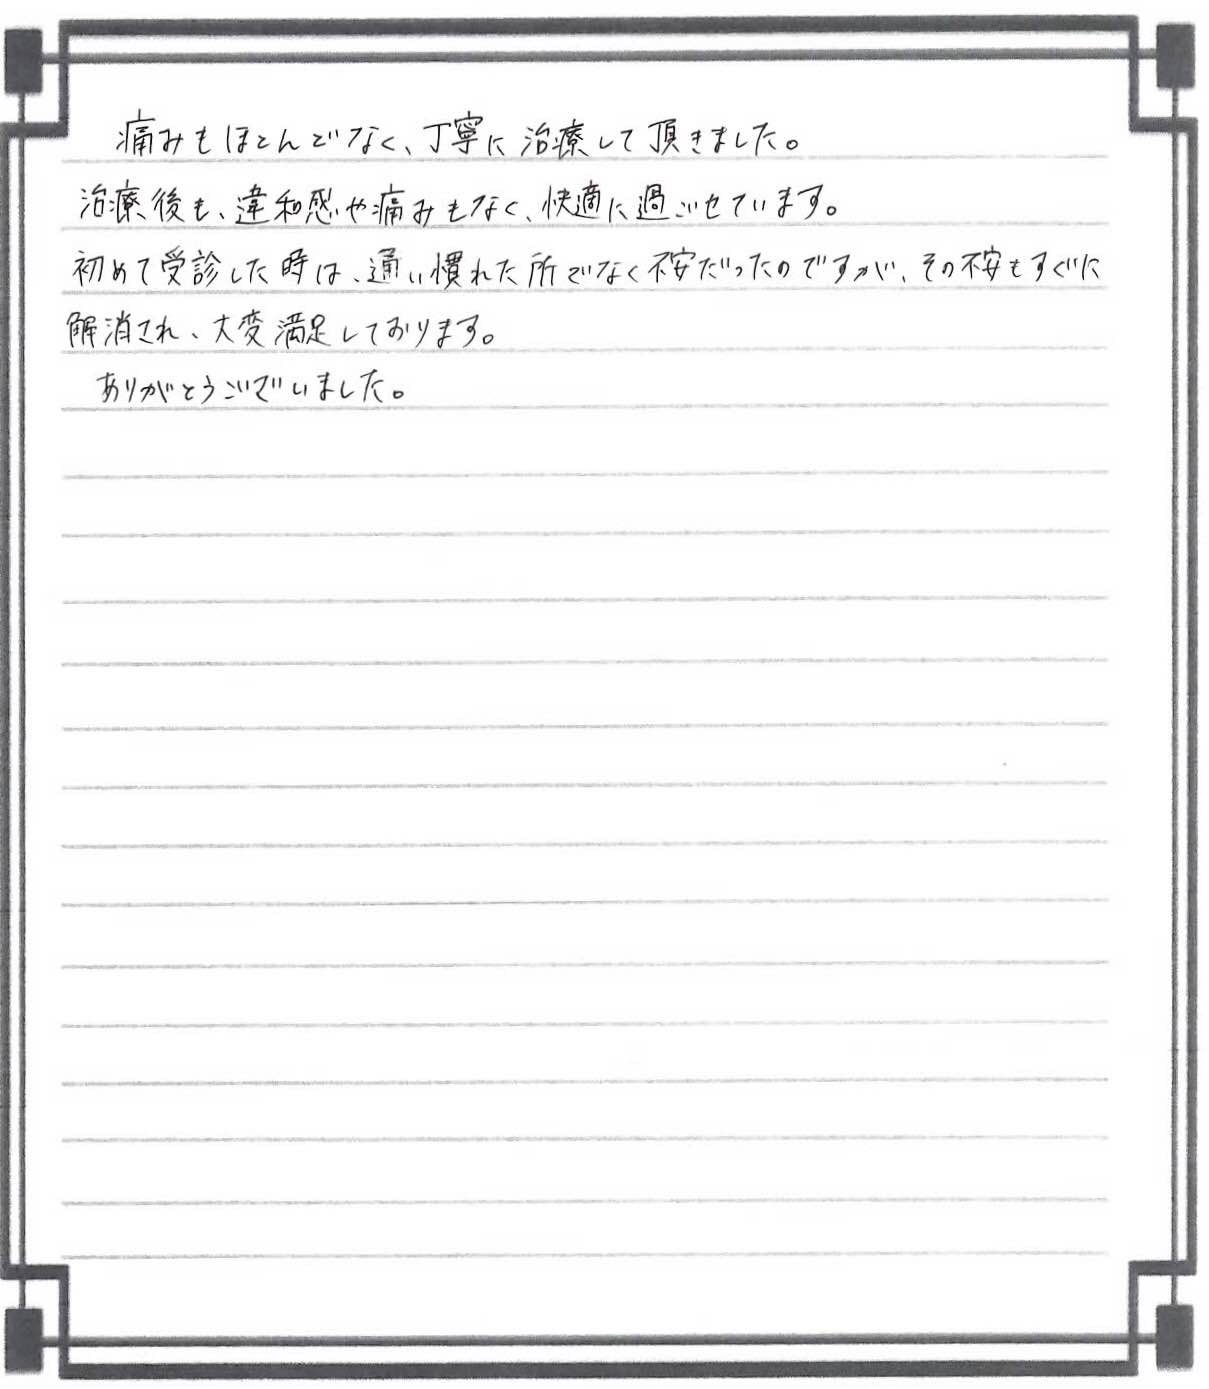 痛みもほとんどなく、丁寧に治療して頂きました。
治療後も、違和感や痛みもなく、快適に過ごせています。
初めて受診した時は、通い慣れた所でなく不安だったのですが、その不安もすぐに
解消され、大変満足しております。
ありがとうございました。